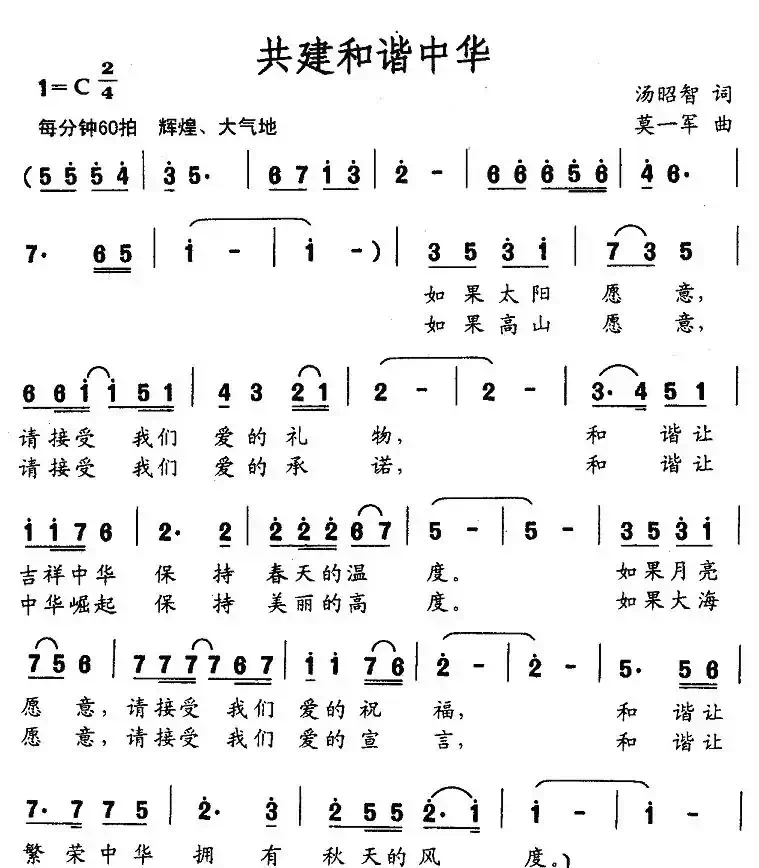 共建和谐中华
1=C 2/4
汤昭智 词
每分钟60拍 辉煌、大气地
莫一军 曲
(5 5 5 4 | 3 5· | 6 7 1 3 | 2 - | 6 6 6 5 6 | 4 6· |
7· 6 5 | 1 - | 1 - ) | 3 5 3 1 | 7 3 5 |
如果太阳 愿 意,
如果高山 愿 意,
6 6 1 1 5 1 | 4 3 2 1 | 2 - | 2 - | 3· 4 5 1 |
请接受 我们 爱的礼 物, 和 谐让
请接受 我们 爱的承 诺, 和 谐让
1 1 7 6 | 2· 2 | 2 2 2 6 7 | 5 - | 5 - | 3 5 3 1 |
吉祥中华 保 持 春天的温 度。 如果月亮
中华崛起 保 持 美丽的高 度。 如果大海
7 5 6 | 7 7 7 7 6 7 | 1 1 7 6 | 2 - | 2 - | 5· 5 6 |
愿 意,请接受 我们 爱的祝 福, 和 谐让
愿 意,请接受 我们 爱的宣 言, 和 谐让
7· 7 7 5 | 2· 3 | 2 5 5 2· 1 | 1 - | 1 - |
繁荣中华 拥 有 秋天的风 度。)